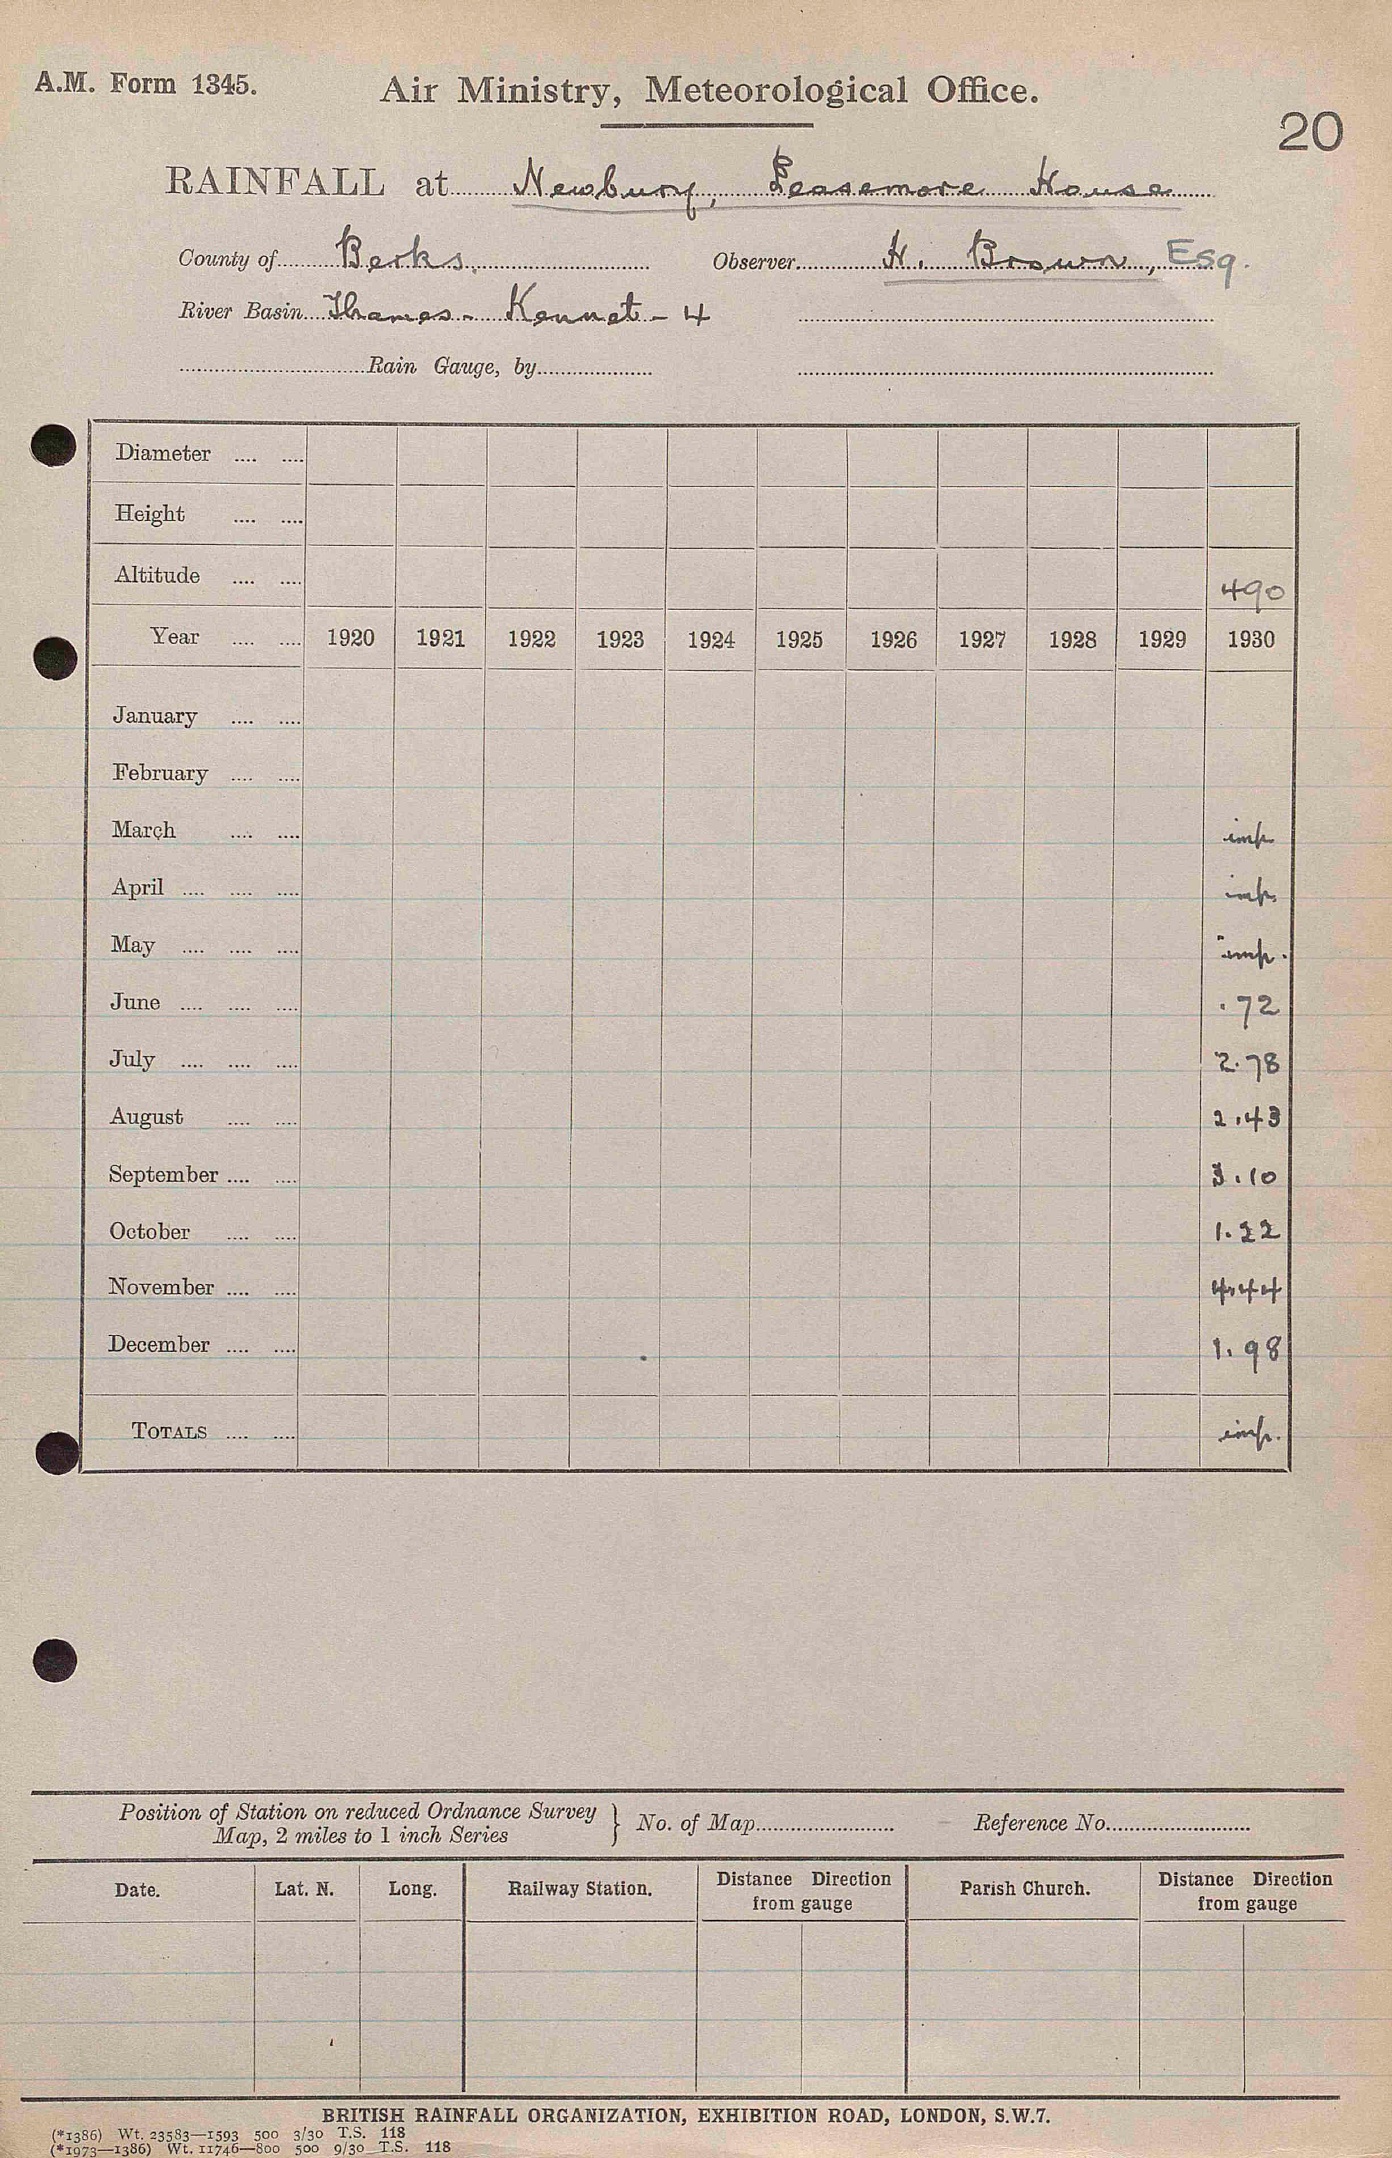 A.M. Form 1345.
Air Ministry, Meteorological Office.
20
RAINFALL at Newbury, Leasemore House
County of Berks. Observer H. Brown, Esq.
River Basin Thames - Kennet - 4
Rain Gauge, by
Diameter .... ....
Height .... ....
Altitude .... .... 490
Year .... .... 1920 1921 1922 1923 1924 1925 1926 1927 1928 1929 1930
January .... ....
February .... ....
March .... .... imp
April .... .... .... imp.
May .... .... .... imp.
June .... .... .... .72
July .... .... .... 2.78
August .... .... 2.43
September .... .... 3.10
October .... .... 1.22
November .... .... 4.44
December .... .... 1.98
TOTALS .... .... imp.
Position of Station on reduced Ordnance Survey
Map, 2 miles to 1 inch Series } No. of Map Reference No.
Date. Lat. N. Long. Railway Station. Distance Direction from gauge Parish Church. Distance Direction from gauge
BRITISH RAINFALL ORGANIZATION, EXHIBITION ROAD, LONDON, S.W.7.
(*1386) Wt. 23583—1593 500 3/30 T.S. 118
(*1973—1386) Wt. 11746—800 500 9/30 T.S. 118